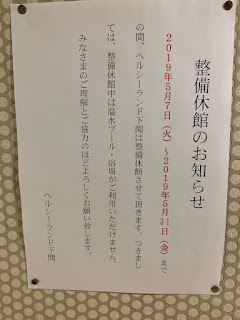 整備休館のお知らせ
2019年5月7日（火）～2019年5月31日（金）まで
の間、ヘルシーランド下関は整備休館させて頂きます。つきまし
ては、整備休館中は温水プール・浴場がご利用いただけません。
みなさまのご理解とご協力のほどよろしくお願い致します。
ヘルシーランド下関